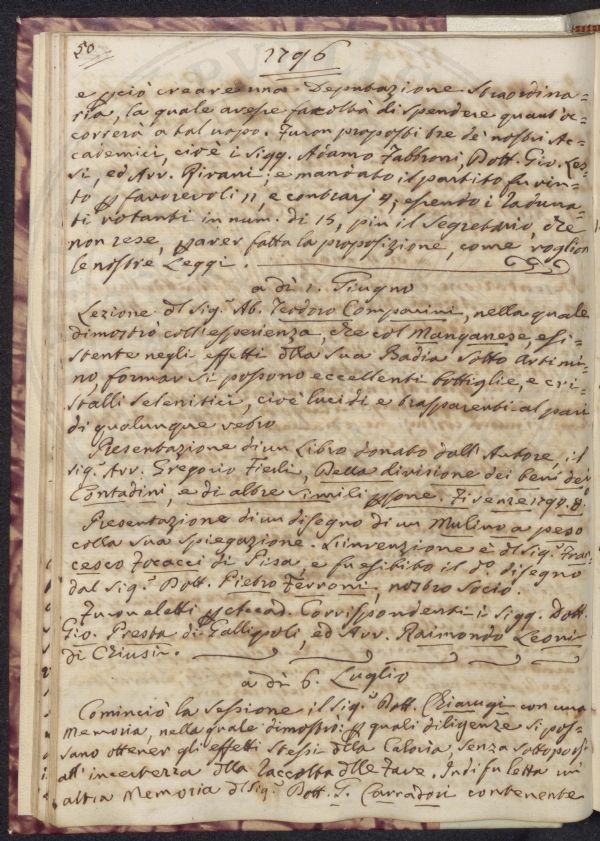 50
1796
e p ciò creare una Deputazione straordina=
ria, la quale avesse facoltà di spendere quant'oc=
correrà a tal uopo. Furon proposti tre de' nostri Ac=
cademici, cioè i Sigg. Adamo Fabbroni, Dott. Gio. Les=
si, ed Avv. Rivani; e mandato il partito fu vin=
to p favorevoli 11, e contrarj 4; essendo i Raduna=
ti votanti in num. di 15, più il Segretario, che
non rese, p aver fatta la proposizione, come voglion
le nostre Leggi.
a dì 1. Giugno
Lezione dl Sig.r Ab. Teodoro Comparini, nella quale
dimostrò coll'esperienza, che col Manganese, esi=
stente negli effetti dlla sua Badia sotto Artimi=
no, formar si possono eccellenti bottiglie, e cri=
stalli selenitici, cioè lucidi e trasparenti al pari
di qualunque vetro
Presentazione di un Libro donato dall'Autore, il
Sig.r Avv. Gregorio Fierli, Della divisione dei beni dei
Contadini, e di altre simili psone. Firenze 1797. 8.o
Presentazione di un disegno di un Mulino a peso
colla sua spiegazione. L'invenzione è dl Sig.r Fran=
cesco Focacci di Pisa, e fu esibito il do disegno
dal Sig.r Dott. Pietro Ferroni, nostro Socio.
Furon eletti p Accad. Corrispondenti i Sigg. Dott.
Gio. Presta di Gallipoli, ed Avv. Raimondo Leoni
di Chiusi.
a dì 6. Luglio
Cominciò la sessione il Sig.r Dott. Chiarugi con una
Memoria, nella quale dimostrò: p quali diligenze si pos=
sano ottener gli effetti stessi dlla Caloria, senza sottoporsi
all'incertezza dlla raccolta dlle fave. Indi fu letta un'
altra Memoria dl Sig.r Dott. G. Carradori contenente